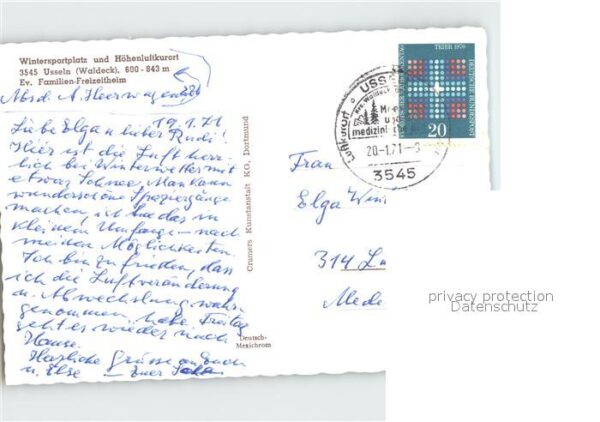 Wintersportplatz und Höhenluftkurort
3545 Usseln (Waldeck), 600-843 m
Ev. Familien-Freizeitheim
Absd. A. Heerwagen
19.1.71
Liebe Elga u lieber Rudi!
Hier ist die Luft herr-
lich bei Winterwetter mit
etwas Schnee. Man kann
wunderschöne Spaziergänge
machen, ich tue das in
kleinem Umfange – nach
meinen Möglichkeiten.
Ich bin zufrieden, dass
ich die Luftveränderung
u. Abwechslung wahr-
genommen habe. Freitag
geht es wieder nach
Hause.
Herzliche Grüsse an Euch
u. Else – Euer
Cramers Kunstanstalt KG, Dortmund
Deutsch-
Mexichrom
TRIER 1970
DEUTSCHE BUNDESPOST
20
USSELN
Luftkurort
medizin
20.-1.71-
3545
Frau
Elga
314
privacy protection
Datenschutz